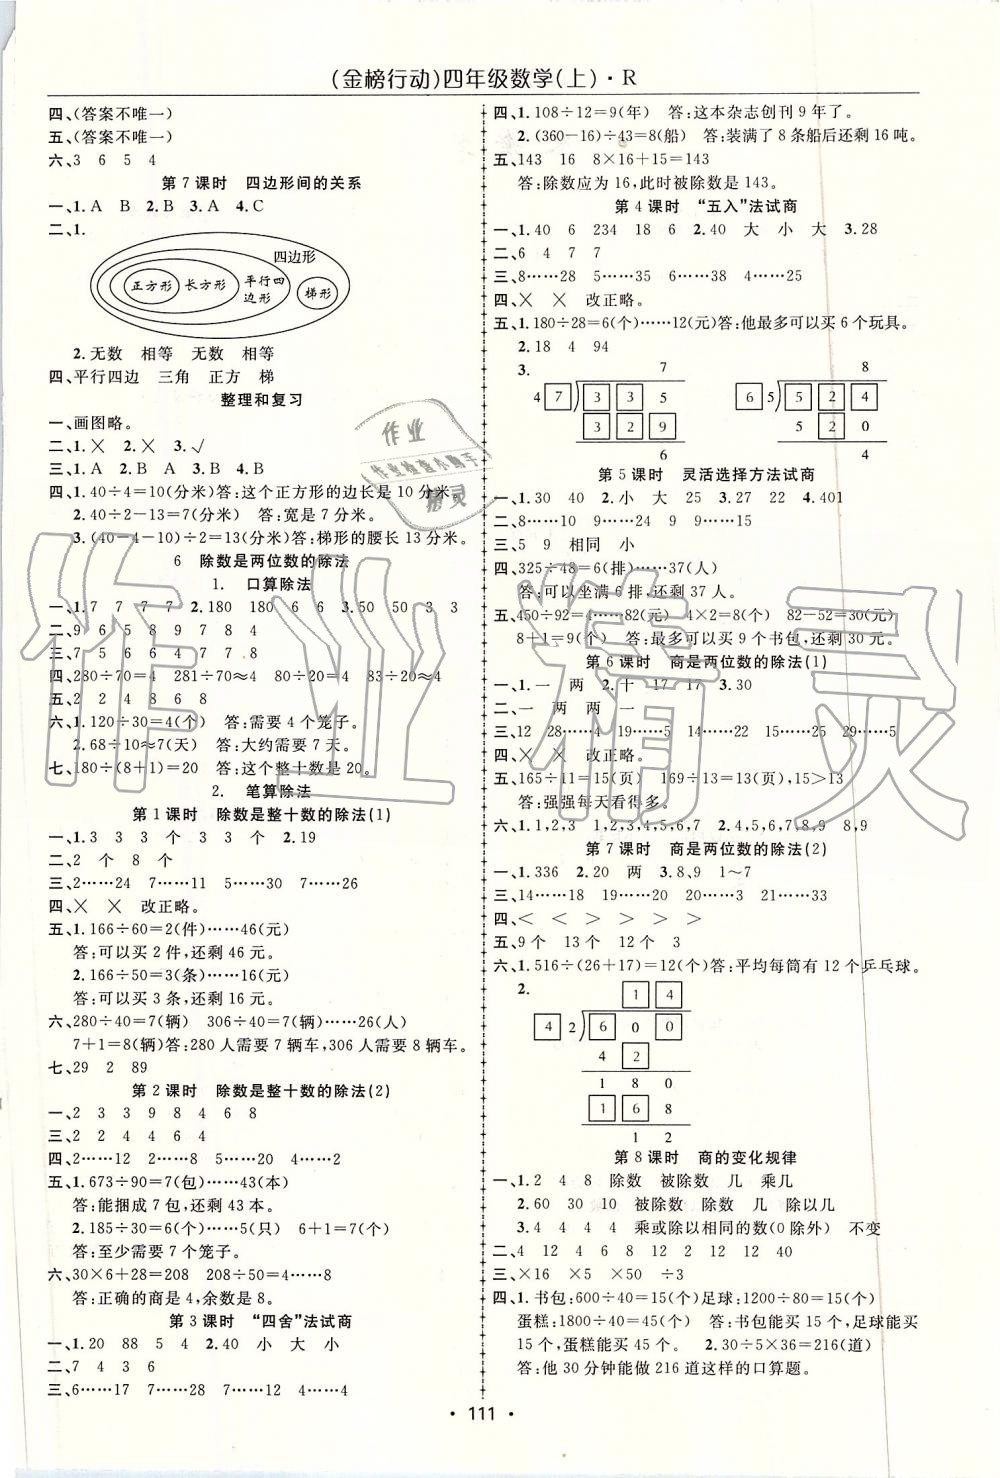 (金榜行动)四年级数学(上)·R
四、(答案不唯一)
五、(答案不唯一)
六、3 6 5 4
第7课时 四边形间的关系
一、1.A B 2.B 3.A 4.C
二、1.
四边形
正方形 长方形 平行四边形 梯形
2.无数 相等 无数 相等
四、平行四边 三角 正方 梯
整理和复习
一、画图略。
二、1.╳ 2.╳ 3.√
三、1.A 2.B 3.B 4.B
四、1.40÷4=10(分米)答:这个正方形的边长是10分米。
2.40÷2-13=7(分米) 答:宽是7分米。
3.(40-4-10)÷2=13(分米)答:梯形的腰长13分米。
6 除数是两位数的除法
1. 口算除法
一、1.7 7 7 7 2.180 180 6 6 3.50 50 3 3
二、9 6 5 8 9 7 8 4
三、7 5 6 6 4 7 7 8
四、280÷70=4 281÷70≈4 80÷20=4 83÷20≈4
五、2 2 4 8 6 8
六、1.120÷30=4(个) 答:需要4个笼子。
2.68÷10≈7(天) 答:大约需要7天。
七、180÷(8+1)=20 答:这个整十数是20。
2. 笔算除法
第1课时 除数是整十数的除法(1)
一、1.3 3 3 个 3 3 个 2.19
二、2 个 8 个
三、2……24 7……11 5……30 7……26
四、╳ ╳ 改正略。
五、1.166÷60=2(件)……46(元)
答:可以买2件,还剩46元。
2.166÷50=3(条)……16(元)
答:可以买3条,还剩16元。
六、280÷40=7(辆) 306÷40=7(辆)……26(人)
7+1=8(辆)答:280人需要7辆车,306人需要8辆车。
七、29 2 89
第2课时 除数是整十数的除法(2)
一、2 3 3 9 8 4 6 8
三、2 2 4 4 6 7
四、2……12 2……20 6……20 4……34
五、1.673÷90=7(包)……43(本)
答:能捆成7包,还剩43本。
2.185÷30=6(个)……5(只) 6+1=7(个)
答:至少需要7个笼子。
六、30×6+28=208 208÷50=4……8
答:正确的商是4,余数是8。
第3课时 “四舍”法试商
一、1.20 88 5 4 2.40 小 大 小
二、7 4 3 6
三、6……17 7……28 7……12 4……4
四、1.108÷12=9(年) 答:这本杂志创刊9年了。
2.(360-16)÷43=8(船) 答:装满了8条船后还剩16吨。
五、143 16 8×16+15=143
答:除数应为16,此时被除数是143。
第4课时 “五入”法试商
一、1.40 6 234 18 6 2.40 大 小 大 3.28
二、6 4 7 7
三、8……28 5……35 6……38 4……25
四、╳ ╳ 改正略。
五、1.180÷28=6(个)……12(元)答:他最多可以买6个玩具。
2.18 4 94
3.
7 8
4 7 3 3 5 6 5 5 2 4
3 2 9 5 2 0
6 4
第5课时 灵活选择方法试商
一、1.30 40 2.小 大 25 3.27 22 4.401
二、8……10 9……24 9……15
三、5 9 相同 小
四、325÷48=6(排)……37(人)
答:可以坐满6排,还剩37人。
五、450÷92=4……82(元) 4×2=8(个) 82-52=30(元)
8+1=9(个) 答:最多可以买9个书包,还剩30元。
第6课时 商是两位数的除法(1)
一、1.一 两 2.十 17 17 3.30
二、一 两 两 一
三、12 28……4 19……5 14……22 15……25 29……5
四、╳ ╳ 改正略。
五、165÷11=15(页) 169÷13=13(页),15>13
答:强强每天看得多。
六、1.1,2,3 1,2,3,4,5,6,7 2.4,5,6,7,8,9 8,9
第7课时 商是两位数的除法(2)
一、1.336 2.20 两 3.8、9 1～7
三、14……18 19……20 20……4 21……33
四、< < > > > >
五、9个 13个 12个 3
六、1.516÷(26+17)=12(个)答:平均每筒有12个乒乓球。
2.
1 4
4 2 6 0 0
4 2
1 8 0
1 6 8
1 2
第8课时 商的变化规律
一、1.2 4 8 除数 被除数 几 乘几
2.60 30 10 被除数 除数 几 除以几
3.4 4 4 4 乘或除以相同的数(0除外) 不变
二、4 12 4 6 8 12 2 12 12 40
三、×16 ×5 ×50 ÷3
四、1.书包:600÷40=15(个)足球:1200÷80=15(个)
蛋糕:1800÷40=45(个) 答:书包能买15个,足球能买
15个,蛋糕能买45个。 2.30÷5×36=216(道)
答:他30分钟能做216道这样的口算题。
·111·
作业
作业检查小助手
精灵
作业精灵